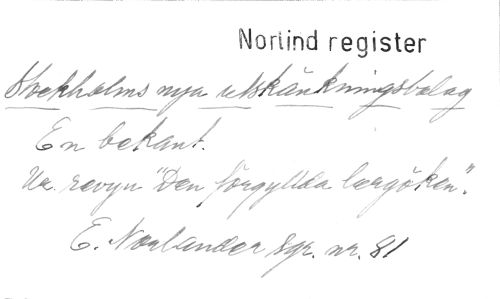 Norlind register
Stockholms nya utskänkningsbolag
En bekant.
Ur revyn "Den förgyllda lergöken".
E. Norlander Sgr. nr. 81